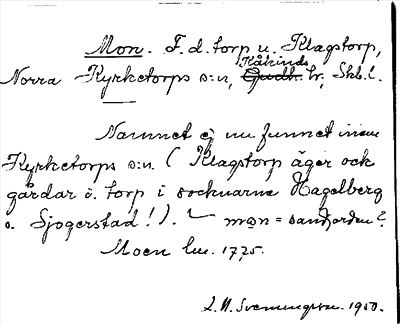 Mon. F. d. torp u. Klagstorp,
Kåkinds
Norra Kyrketorps s:n, Gudh. hr, Skb. l.
Namnet ej nu funnet inom
Kyrketorps s:n. (Klagstorp äger ock
gårdar o. torp i socknarna Hagelberg
o. Sjogerstad!). – mon = sandjorden?
Moen lm. 1725.
L. M. Svenungsson. 1950.